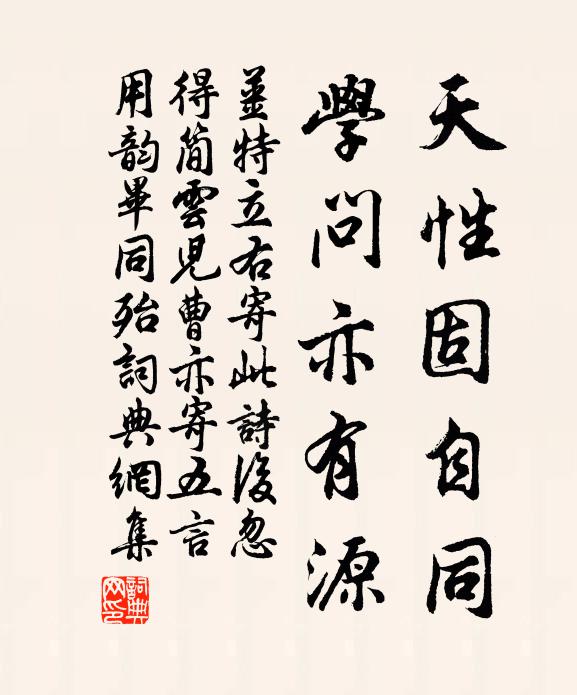 天性固自同
學問亦有源
薑特立右寄此詩後忽
得簡雲兒曹亦寄五言
用韵畢同殆詞典網集
詞典网印